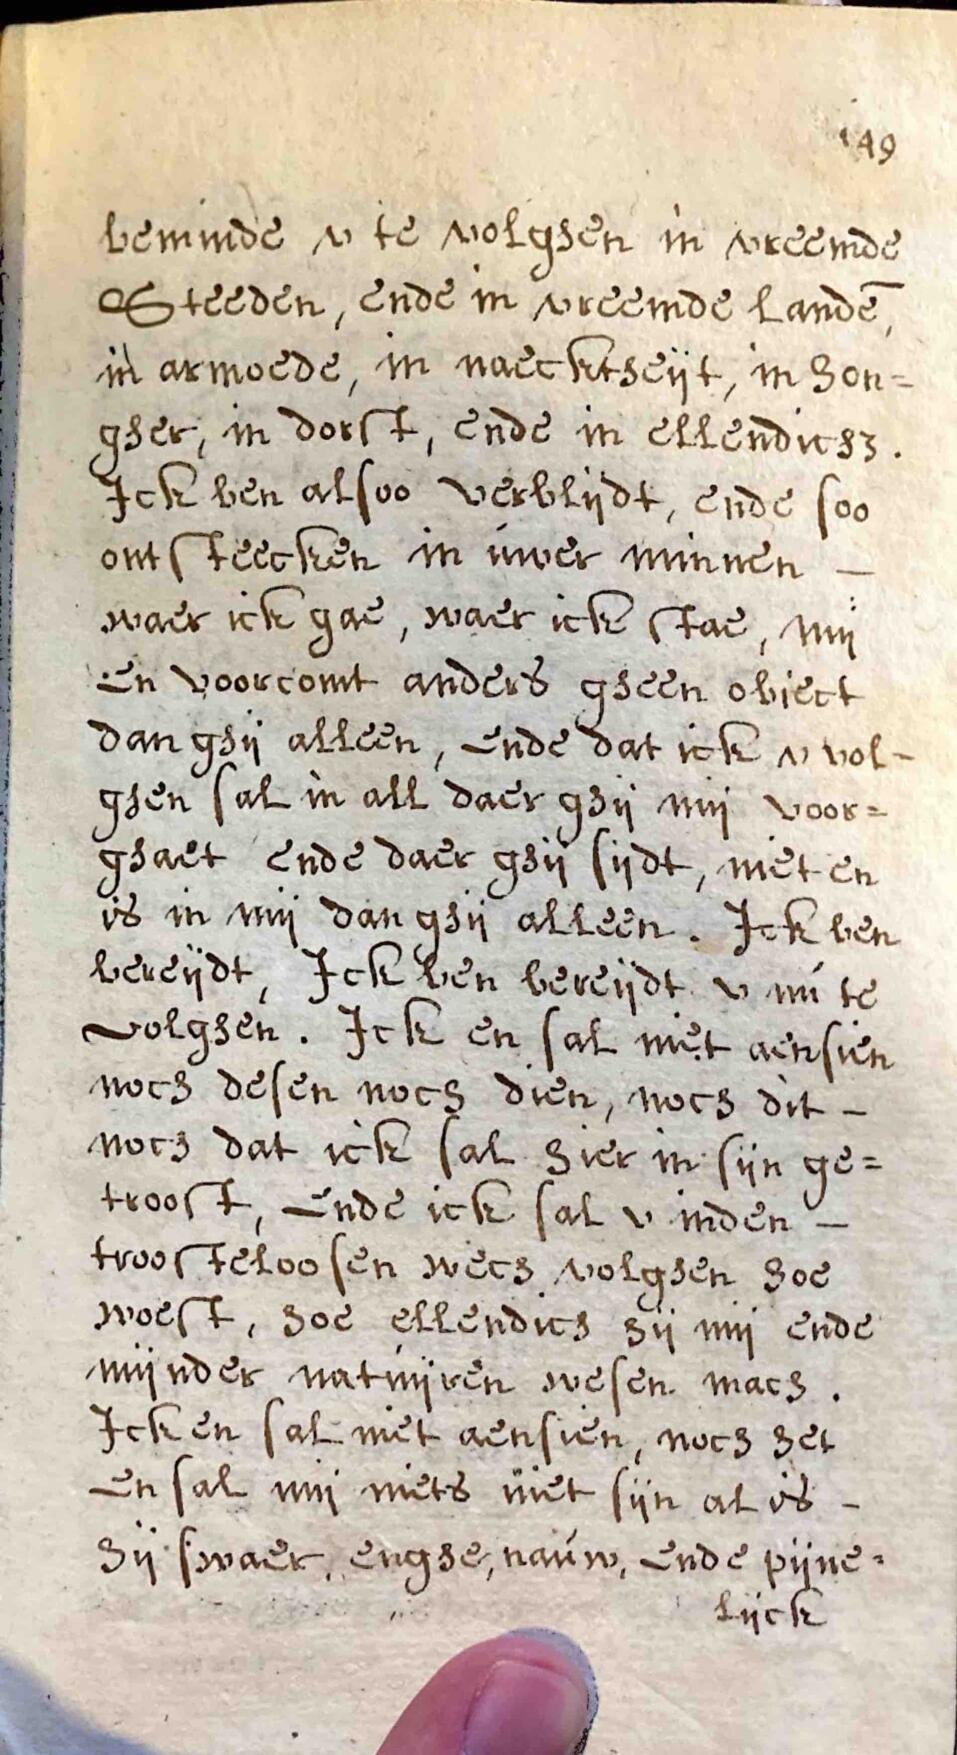 149
beminde v te volghen in vreemde
Steeden, ende in vreemde Landē,
in armoede, in naecktheijt, in hon=
gher, in dorst, ende in ellendich3.
Ick ben alsoo verblijdt, ende soo
ontsteecken in úwer minnen —
waer ick gae, waer ick stae, mij
en voorcomt anders gheen obiect
dan ghij alleen, ende dat ick v vol-
ghen sal in all daer ghij mij voor=
ghaet ende daer ghij sijdt, niet en
is in mij dan ghij alleen. Ick ben
bereijdt, Ick ben bereijdt v nú te
volghen. Ick en sal niet aensien
noch desen noch dien, noch dit —
noch dat ick sal hier in sijn ge=
troost, ende ick sal v inden —
troosteloosen wech volghen hoe
woest, hoe ellendich hij mij ende
mijnder natuijren wesen mach.
Ick en sal niet aensien, noch het
en sal mij niets niet sijn al is —
hij swaer, enghe, naúw, ende pijne=
lijck